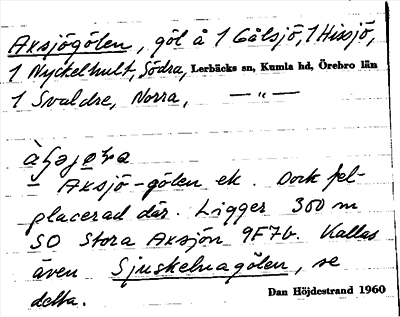 Axsjögölen, göl å 1 Gålsjö, 1 Hissjö,
1 Nyckelhult, Södra, Lerbäcks sn, Kumla hd, Örebro län
1 Svaldre, Norra, — „ —
— Axsjö-gölen ek. Dock fel-
placerad där. Ligger 300 m
SO Stora Axsjön 9F7b. Kallas
även Sjuskelnagölen, se
detta.
Dan Höjdestrand 1960